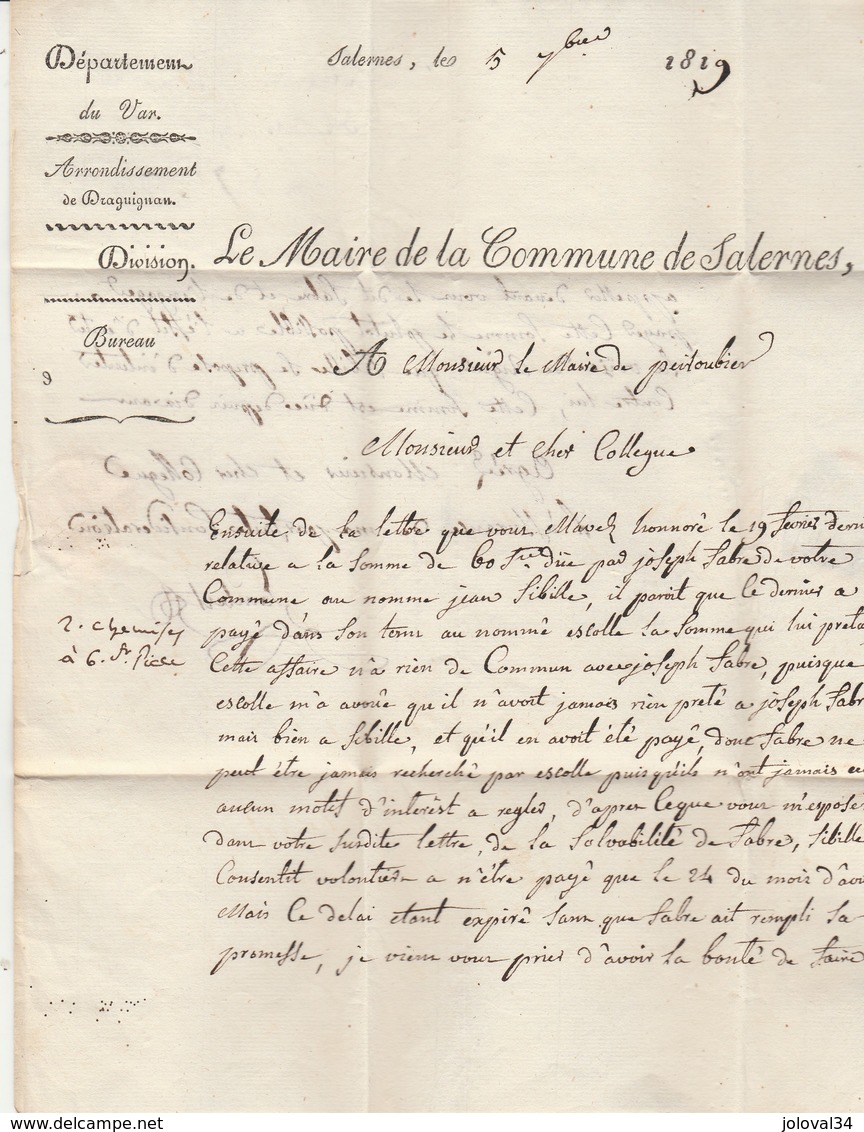 Département
du Var.
Arrondissement
de Draguignan.
Division.
Bureau
d
Salernes, le 5 7bre 1819
Le Maire de la Commune de Salernes,
A Monsieur le Maire de peiloubier
Monsieur et cher Collegue
Ensuite de la lettre que vous M'avez honnoré le 19 fevrier dern
relative a la somme de 60 frcs düe par joseph fabre de votre
Commune au nomme jean Sibille, il paroit que ce dernier a
payé dans son tems au nommé escolle la somme qui lui preta
Cette affaire n'a rien de Commun avec joseph fabre, puisque
escolle m'a avoüe qu'il n'avoit jamais rien preté a joseph fabr
mais bien a Sibille, et qu'il en avoit été payé, donc fabre ne
peut étre jamais recherché par escolle puisqu'ils n'ont jamais eu
aucun motif d'interêst a regler, d'apres ceque vous m'exposé
dans votre susdite lettre, de la solvabilité de fabre, Sibille
Consentit volontiers a n'étre payé que le 24 du mois d'avr
Mais Ce delai etant expiré sans que fabre ait rempli sa
promesse, je viens vous prier d'avoir la bonté de faire
2. chemises
à 6. fr piece
www.delcampe.net
joloval34